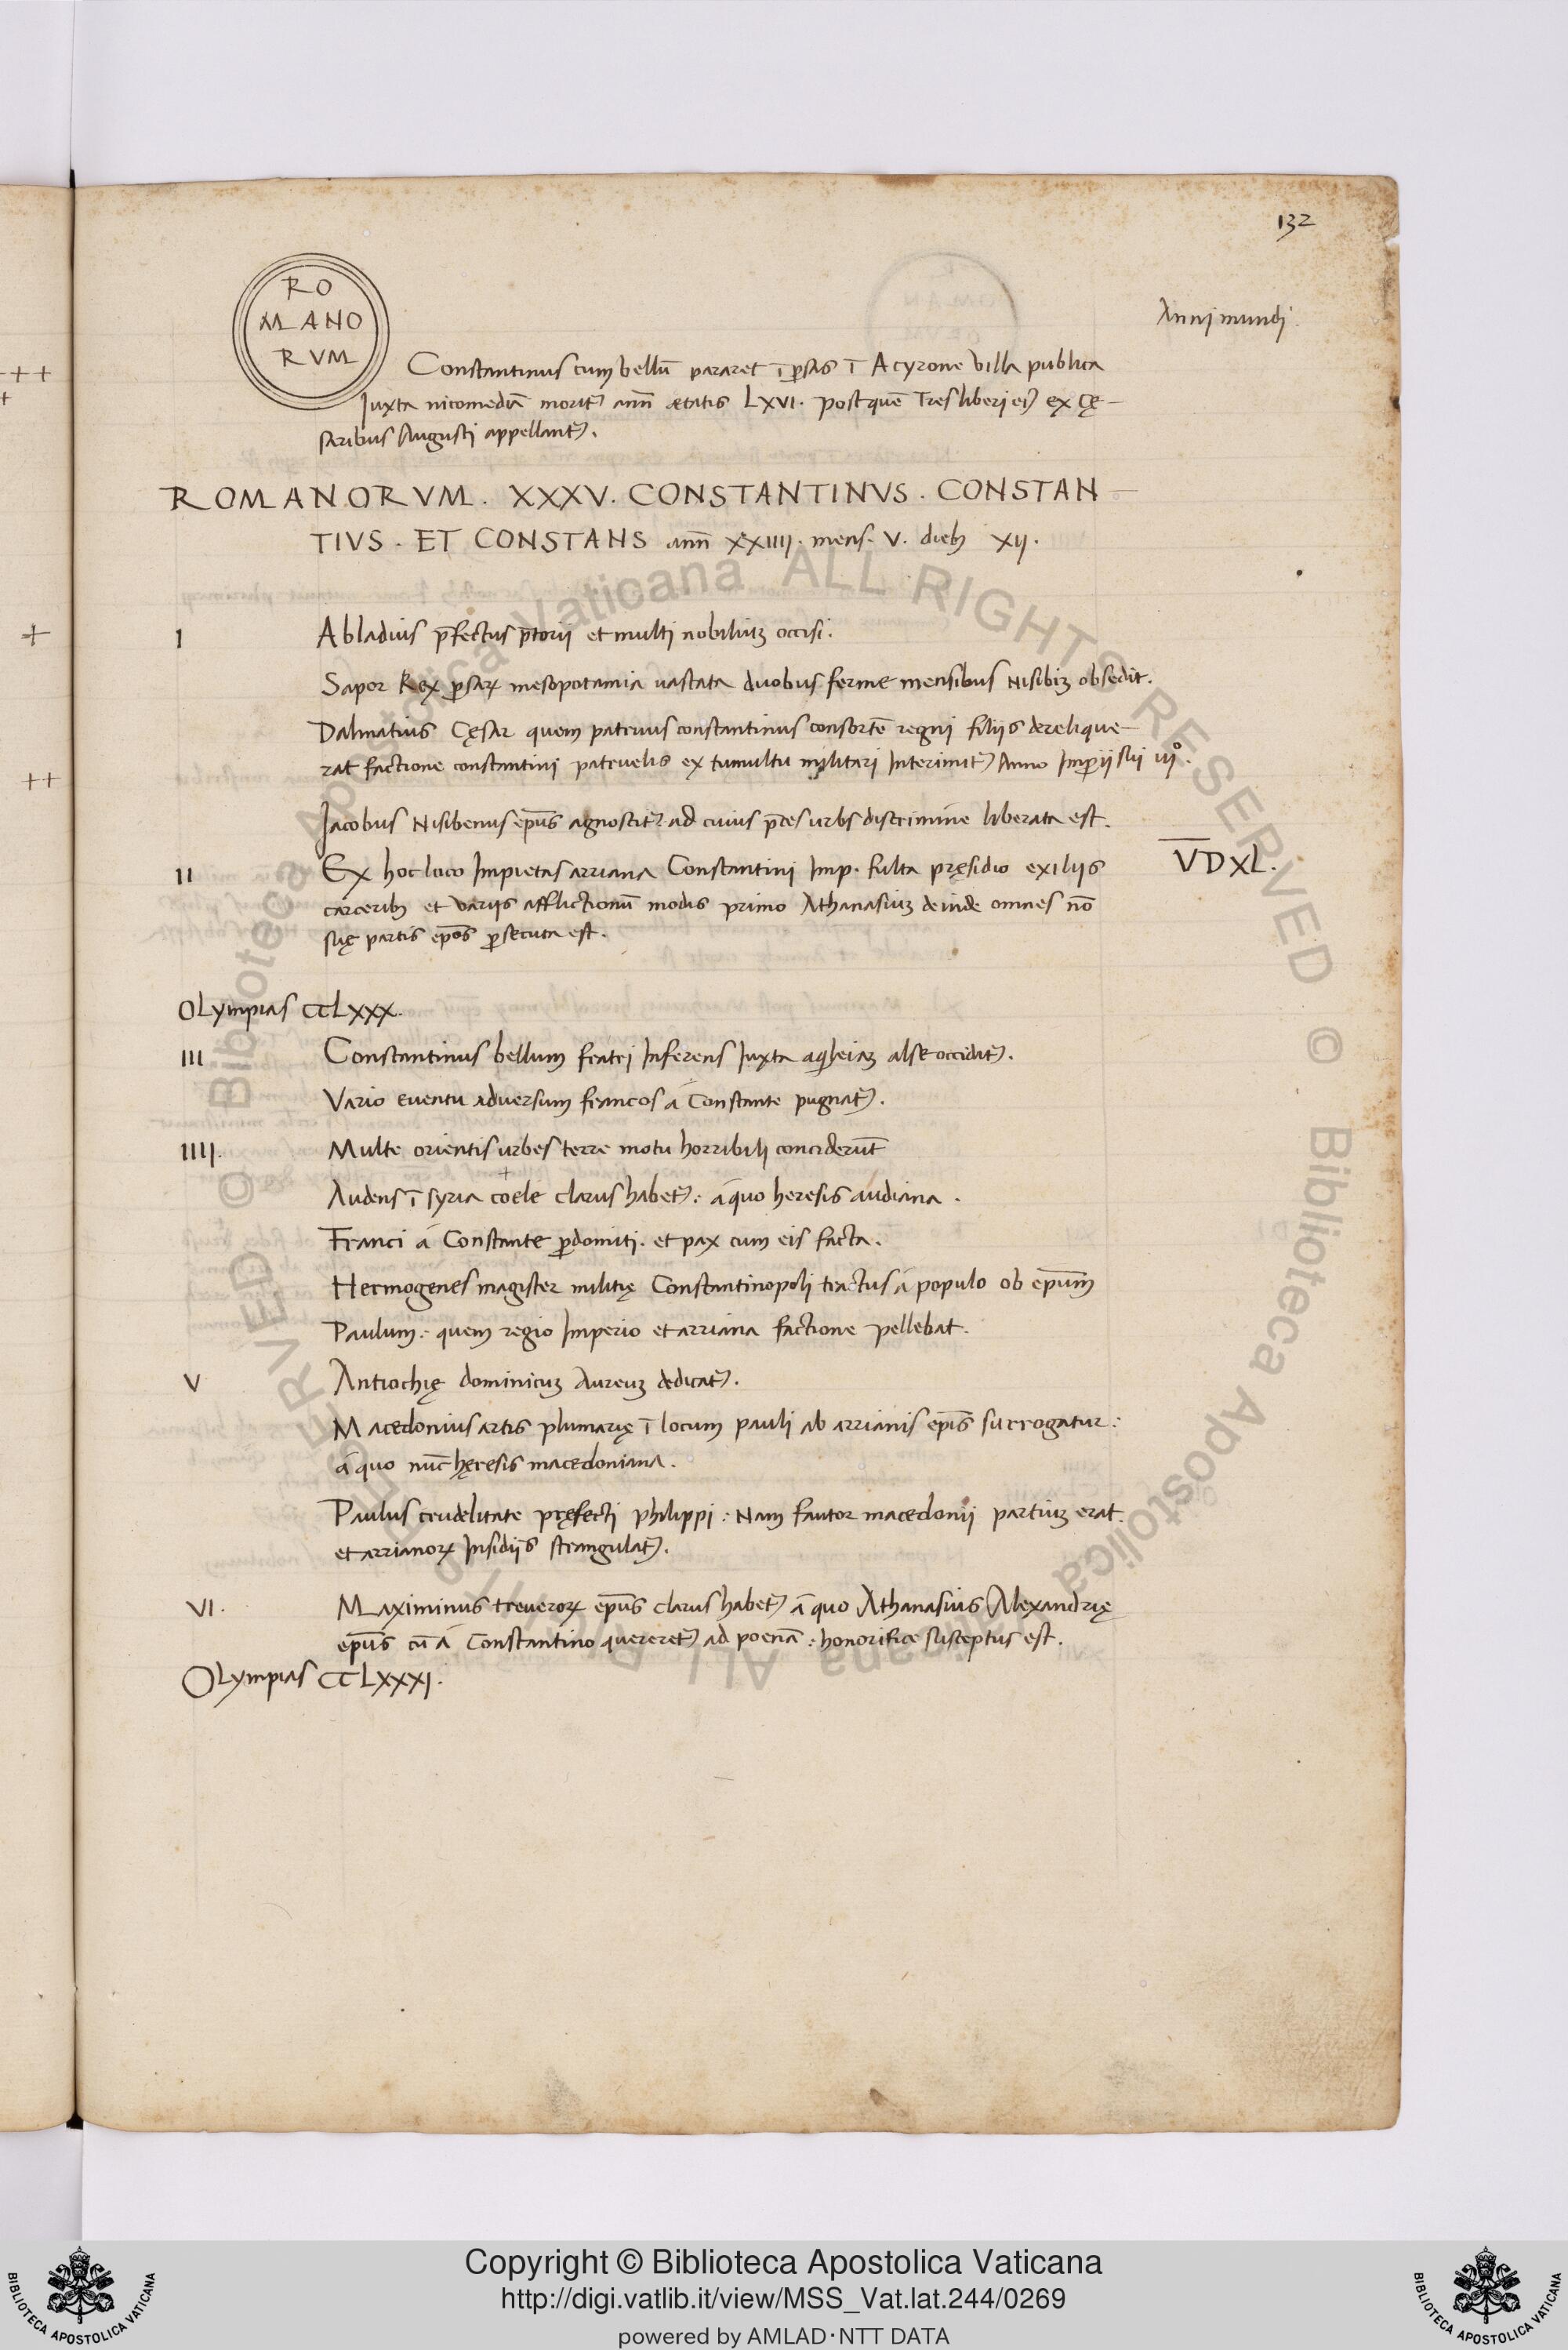 132
RO
MANO
RVM
Annj mundj.
Constantinus cum bellū pararet ī ꝑsas ī Acyrone villa publica
Juxta nicomediā morit̉ anñ ætatis LXVI. postquē Tres liberj ei⁹ ex Cę-
saribus Augustj appellant̉.
ROMANORVM. XXXV. CONSTANTINVS. CONSTAN-
TIVS. ET CONSTANS anñ XXIIII. mens. V. dieb; XIJ.
+
I Abladius p̄fectus p̄torii et multi nobiliuꝫ occisi.
Sapor Rex ꝑsaꝝ mesopotamia uastata duobus ferme mensibus Nisibiꝫ obsedit.
Dalmatius Cęsar quem patruus constantinus consortē regni filiis derelique-
++
rat factione constantini patruelis ex tumultu militari Interimit̉ Anno Imꝑii sui iijº.
Jacobus Nisibenus ep̄us agnoscit̉: ad cuius p̄ces urbs discrimine liberata est.
II Ex hoc loco Impietas arriana Constantini Imp. fulta pręsidio exiliis V̅DXL.
carcerib; et variis afflictionū modis primo Athanasiuꝫ deinde omnes nō
suę partis ep̄os ꝑsecuta est.
OLympias CCLXXX.
III Constantinus bellum fratri Inferens Juxta aqͥleiaꝫ alsę occidit̉.
Vario euentu aduersum francos á Constante pugnat̉.
IIIJ. Multe orientis urbes terre motu horribilj conciderūt
+
Audeus ī syria coele clarus habet̉: á quo heresis audiana.
Franci á Constante ꝑdomiti. et pax cum eis facta.
Hermogenes magister militię Constantinopoli tractus á populo ob ep̄um
Paulum: quem regio Imperio et arriana factione pellebat.
V Antiochię dominicuꝫ Aureuꝫ dedicat̉.
Macedonius artis plumarię ī locum pauli ab arrianis ep̄is surrogatur:
á quo nūc hęresis macedoniana.
Paulus crudelitate pręfecti philippi: Nam fautor macedonii partiuꝫ erat.
et arrianoꝝ Insidiis strangulat̉.
VI. Maximinus treueroꝝ ep̄us clarus habet̉ á quo Athanasius Alexandrię
ep̄us cū á Constantino quereret̉ ad poenā: honorifice susceptus est.
OLympias CCLXXXJ.
© Biblioteca Apostolica Vaticana ALL RIGHTS RESERVED © Biblioteca Apostolica Vaticana ALL RIGHTS RESERVED
Copyright © Biblioteca Apostolica Vaticana
http://digi.vatlib.it/view/MSS_Vat.lat.244/0269
powered by AMLAD·NTT DATA
BIBLIOTECA APOSTOLICA VATICANA
BIBLIOTECA APOSTOLICA VATICANA